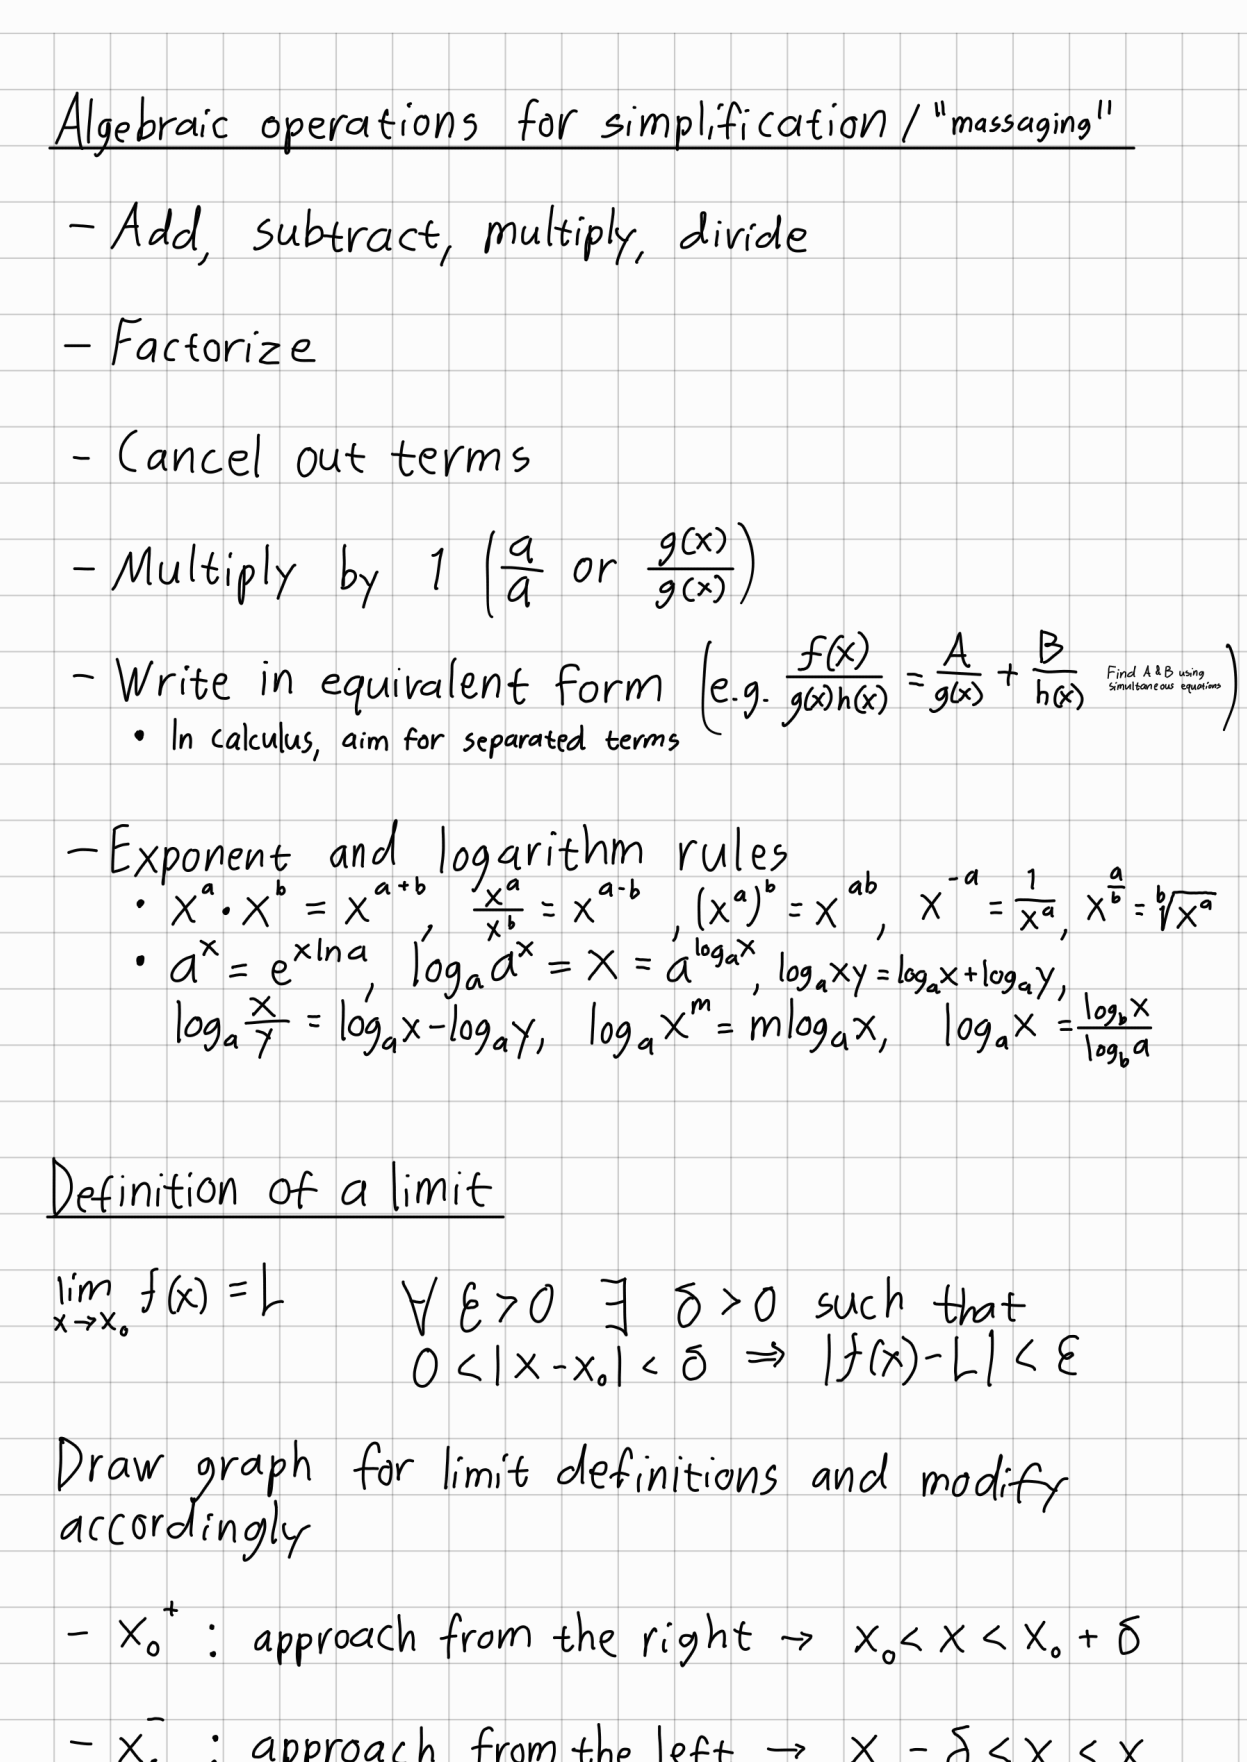 Algebraic operations for simplification / "massaging"
- Add, subtract, multiply, divide
- Factorize
- Cancel out terms
- Multiply by 1 (a/a or g(x)/g(x))
- Write in equivalent form (e.g. f(x)/(g(x)h(x)) = A/g(x) + B/h(x) Find A & B using simultaneous equations)
• In calculus, aim for separated terms
- Exponent and logarithm rules
• x^a · x^b = x^(a+b), x^a/x^b = x^(a-b), (x^a)^b = x^(ab), x^(-a) = 1/x^a, x^(a/b) = ᵇ√(x^a)
• a^x = e^(x ln a), log_a a^x = x = a^(log_a x), log_a xy = log_a x + log_a y,
log_a x/y = log_a x - log_a y, log_a x^m = m log_a x, log_a x = log_b x / log_b a
Definition of a limit
lim x→x₀ f(x) = L ∀ ε > 0 ∃ δ > 0 such that
0 < |x - x₀| < δ ⇒ |f(x) - L| < ε
Draw graph for limit definitions and modify
accordingly
- x₀⁺ : approach from the right → x₀ < x < x₀ + δ
- x₀⁻ : approach from the left → x₀ - δ < x < x₀